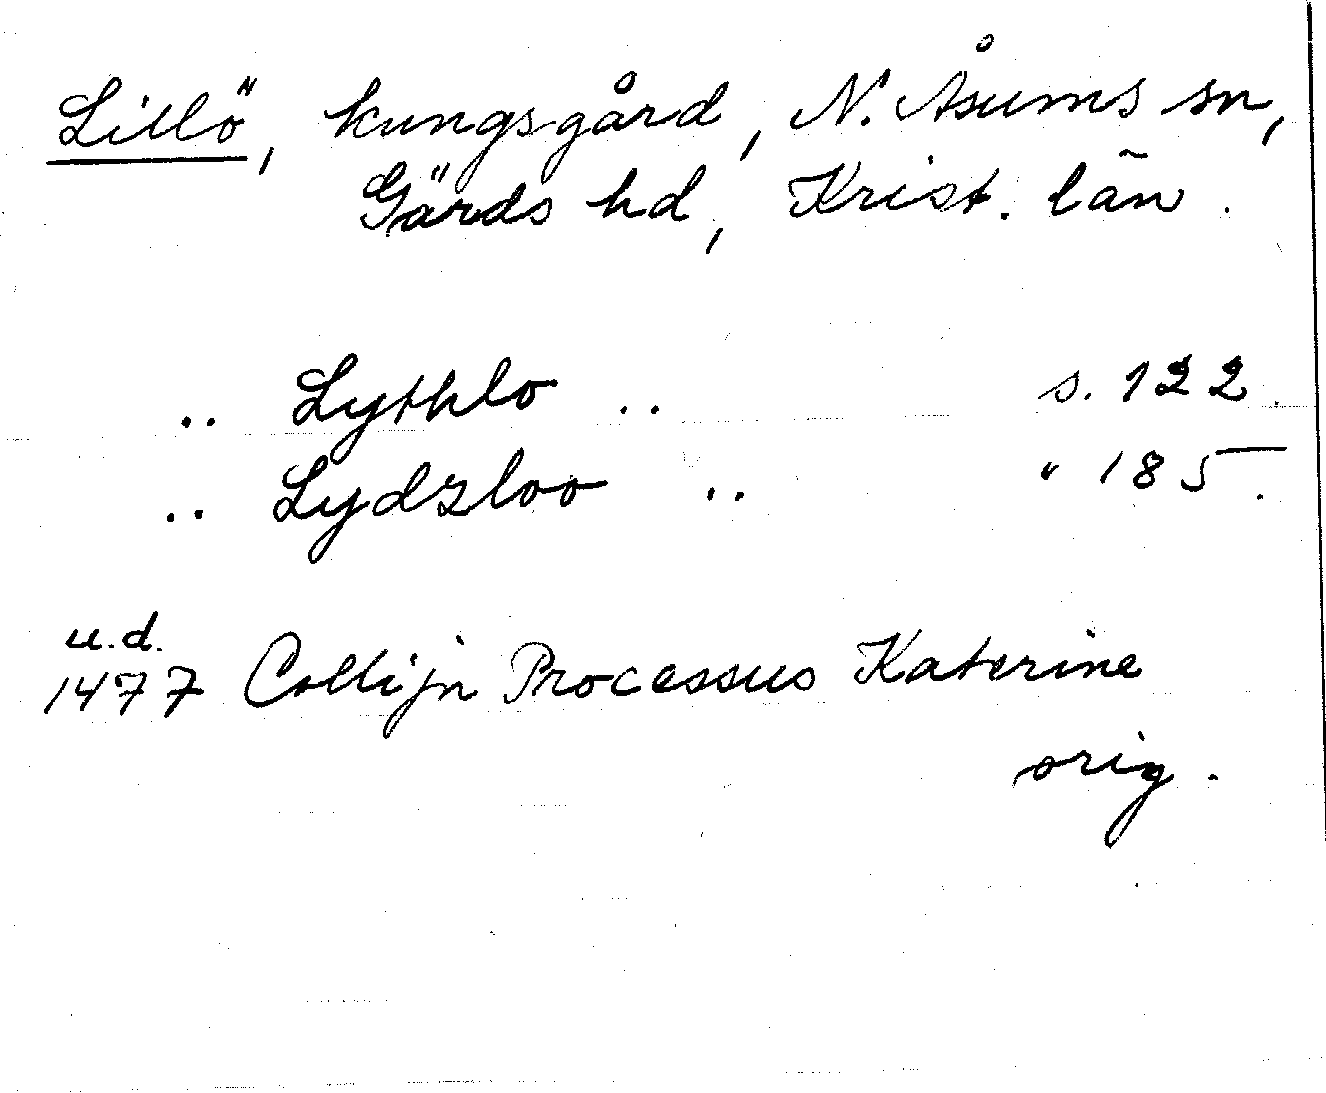 Lillö, kungsgård, N. Åsums sn,
Gärds hd, Krist. län.
.. Lythlo .. s. 122.
.. Lydzloo .. " 185.
u.d.
1477 Collijn Processus Katerine
orig.